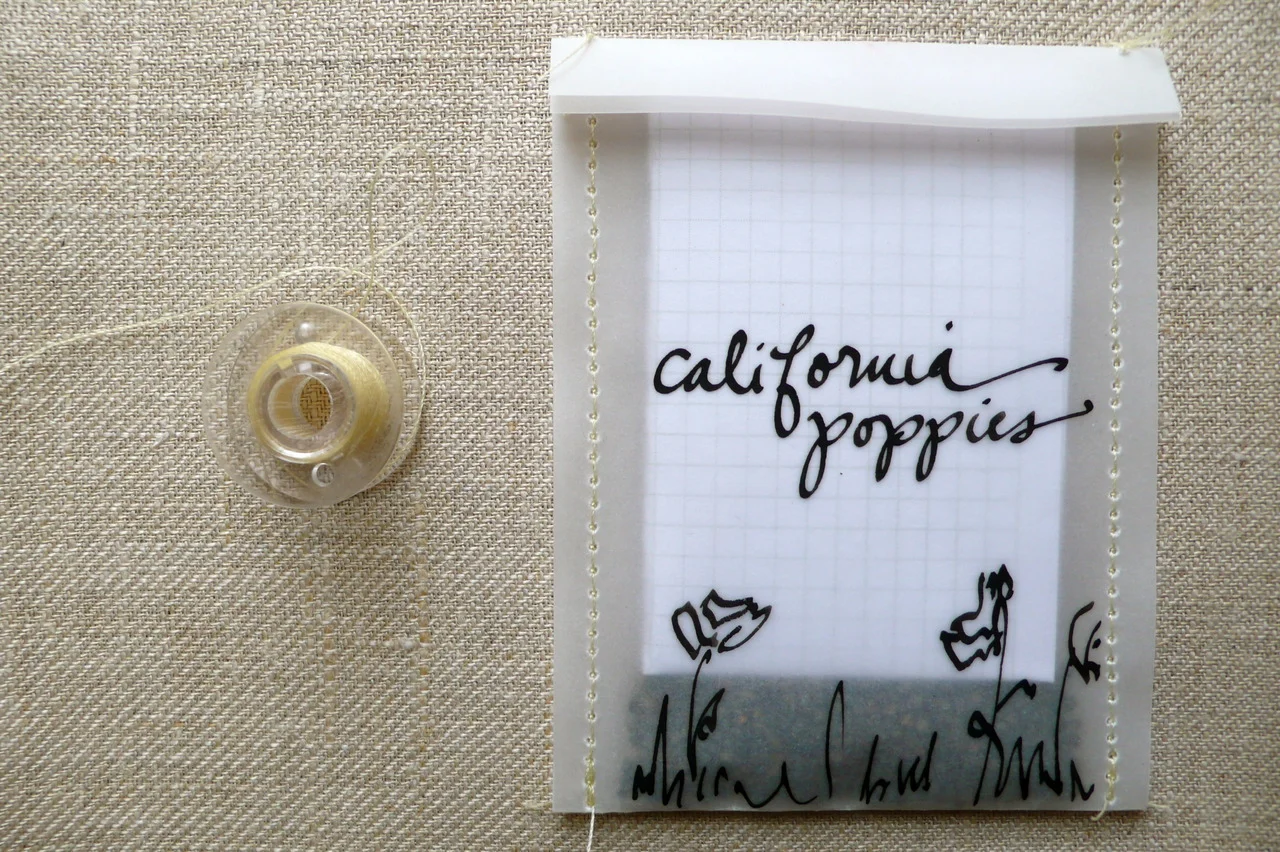 california
poppies